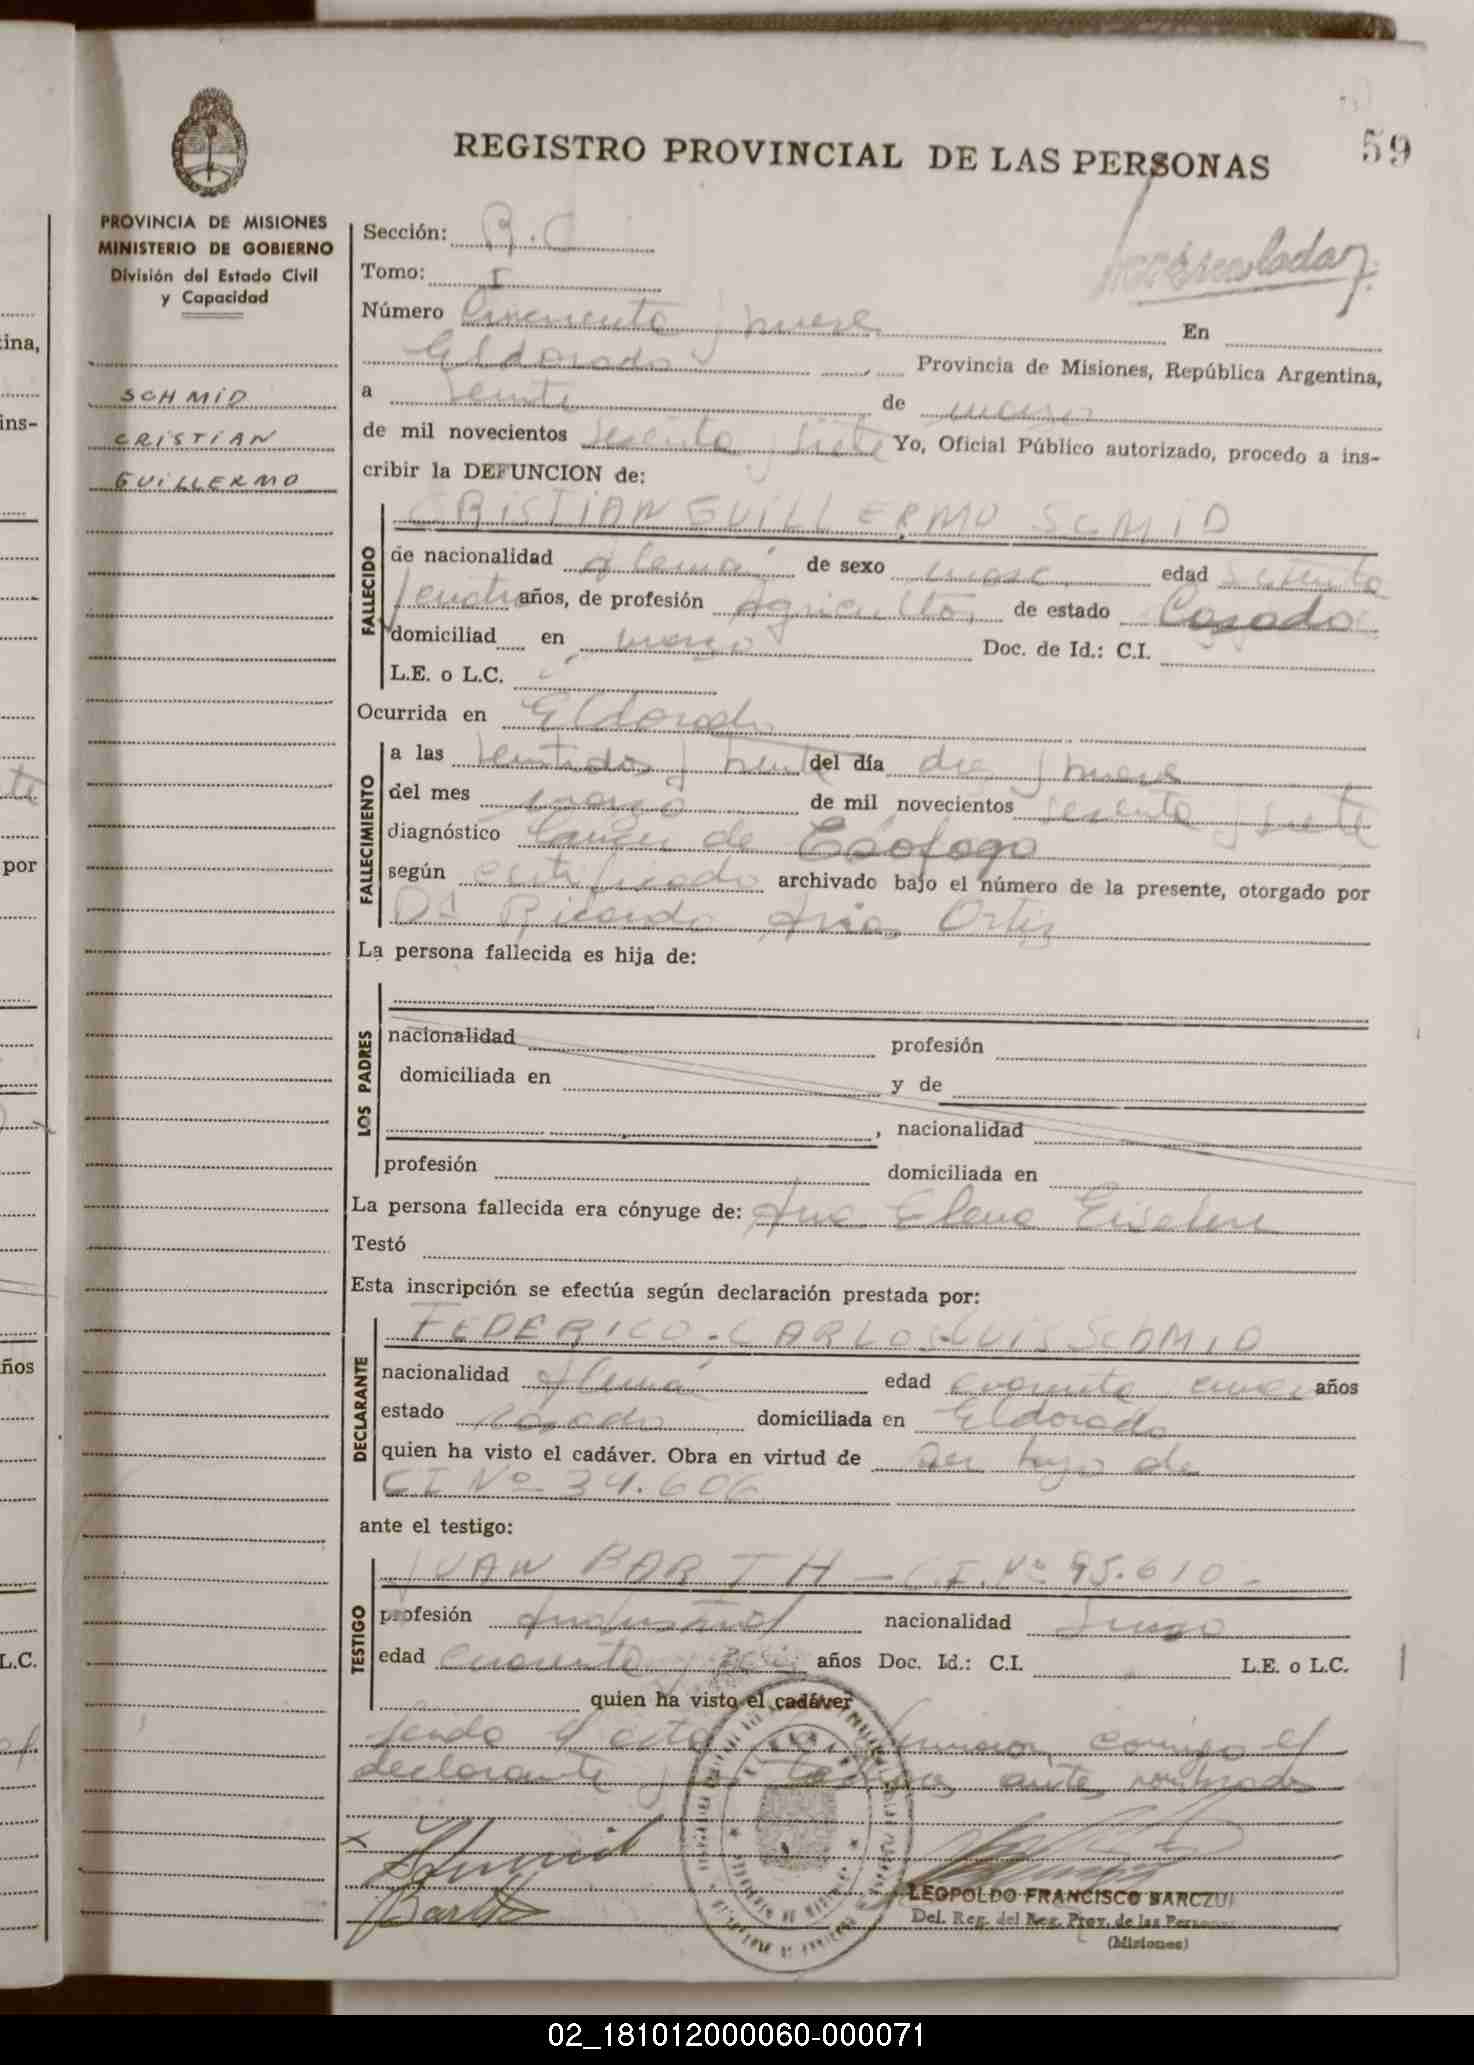 59
REGISTRO PROVINCIAL DE LAS PERSONAS
PROVINCIA DE MISIONES
MINISTERIO DE GOBIERNO
División del Estado Civil
y Capacidad
SCHMID
CRISTIAN
GUILLERMO
Sección: R.C
Tomo: I
Número Cincuenta y nueve En
Eldorado, Provincia de Misiones, República Argentina,
a veinte de marzo
de mil novecientos sesenta y siete Yo, Oficial Público autorizado, procedo a ins-
cribir la DEFUNCION de:
FALLECIDO
CRISTIAN GUILLERMO SCMID
de nacionalidad Alemá de sexo masc edad setenta
y cuatro años, de profesión Agricultor, de estado Casado
domiciliad en Doc. de Id.: C.I.
L.E. o L.C.
Ocurrida en Eldorado
FALLECIMIENTO
a las veintidos y treinta del día diez y nueve
del mes marzo de mil novecientos sesenta y siete
diagnóstico Cancer de Esófago
según certificado archivado bajo el número de la presente, otorgado por
Dr Ricardo Arias Ortiz
La persona fallecida es hija de:
LOS PADRES
nacionalidad profesión
domiciliada en y de
, nacionalidad
profesión domiciliada en
La persona fallecida era cónyuge de: Ana Elena Eiselen
Testó
Esta inscripción se efectúa según declaración prestada por:
DECLARANTE
FEDERICO CARLOS LUIS SCHMID
nacionalidad Alemá edad cuarenta años
estado casado domiciliada en Eldorado
quien ha visto el cadáver. Obra en virtud de ser hijo de
CI Nº 34.606
ante el testigo:
TESTIGO
JUAN BARTH - C.I. Nº 95.610 -
profesión Industrial nacionalidad Suizo
edad cuarenta y años Doc. Id.: C.I. L.E. o L.C.
quien ha visto el cadáver
Leida el acta conmigo el
declarante y testigo antes nombrados
Schmid
Barth
LEOPOLDO FRANCISCO SARCZUK
Del. Reg. del Reg. Prov. de las Personas
(Misiones)
02_181012000060-000071